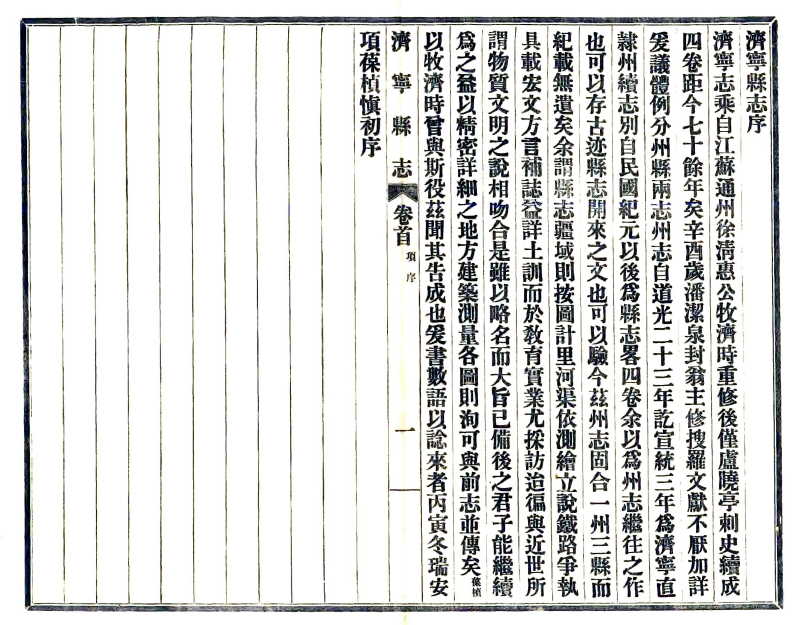 濟寧縣志序
濟寧志乘自江蘇通州徐清惠公牧濟時重修後僅盧曉亭刺史續成
四卷距今七十餘年矣辛酉歲潘潔泉封翁主修搜羅文獻不厭加詳
爰議體例分州縣兩志州志自道光二十三年訖宣統三年爲濟寧直
隸州續志別自民國紀元以後爲縣志畧四卷余以爲州志繼往之作
也可以存古迹縣志開來之文也可以驗今茲州志固合一州三縣而
紀載無遺矣余謂縣志疆域則按圖計里河渠依測繪立說鐵路爭執
具載宏文方言補誌益詳土訓而於教育實業尤採訪洽徧與近世所
謂物質文明之說相吻合是雖以略名而大旨已備後之君子能繼續
爲之益以精密詳細之地方建築測量各圖則洵可與前志並傳矣葆楨
以牧濟時曾與斯役茲聞其告成也爰書數語以諗來者丙寅冬瑞安
濟寧縣志 卷首 項序 一
項葆楨愼初序